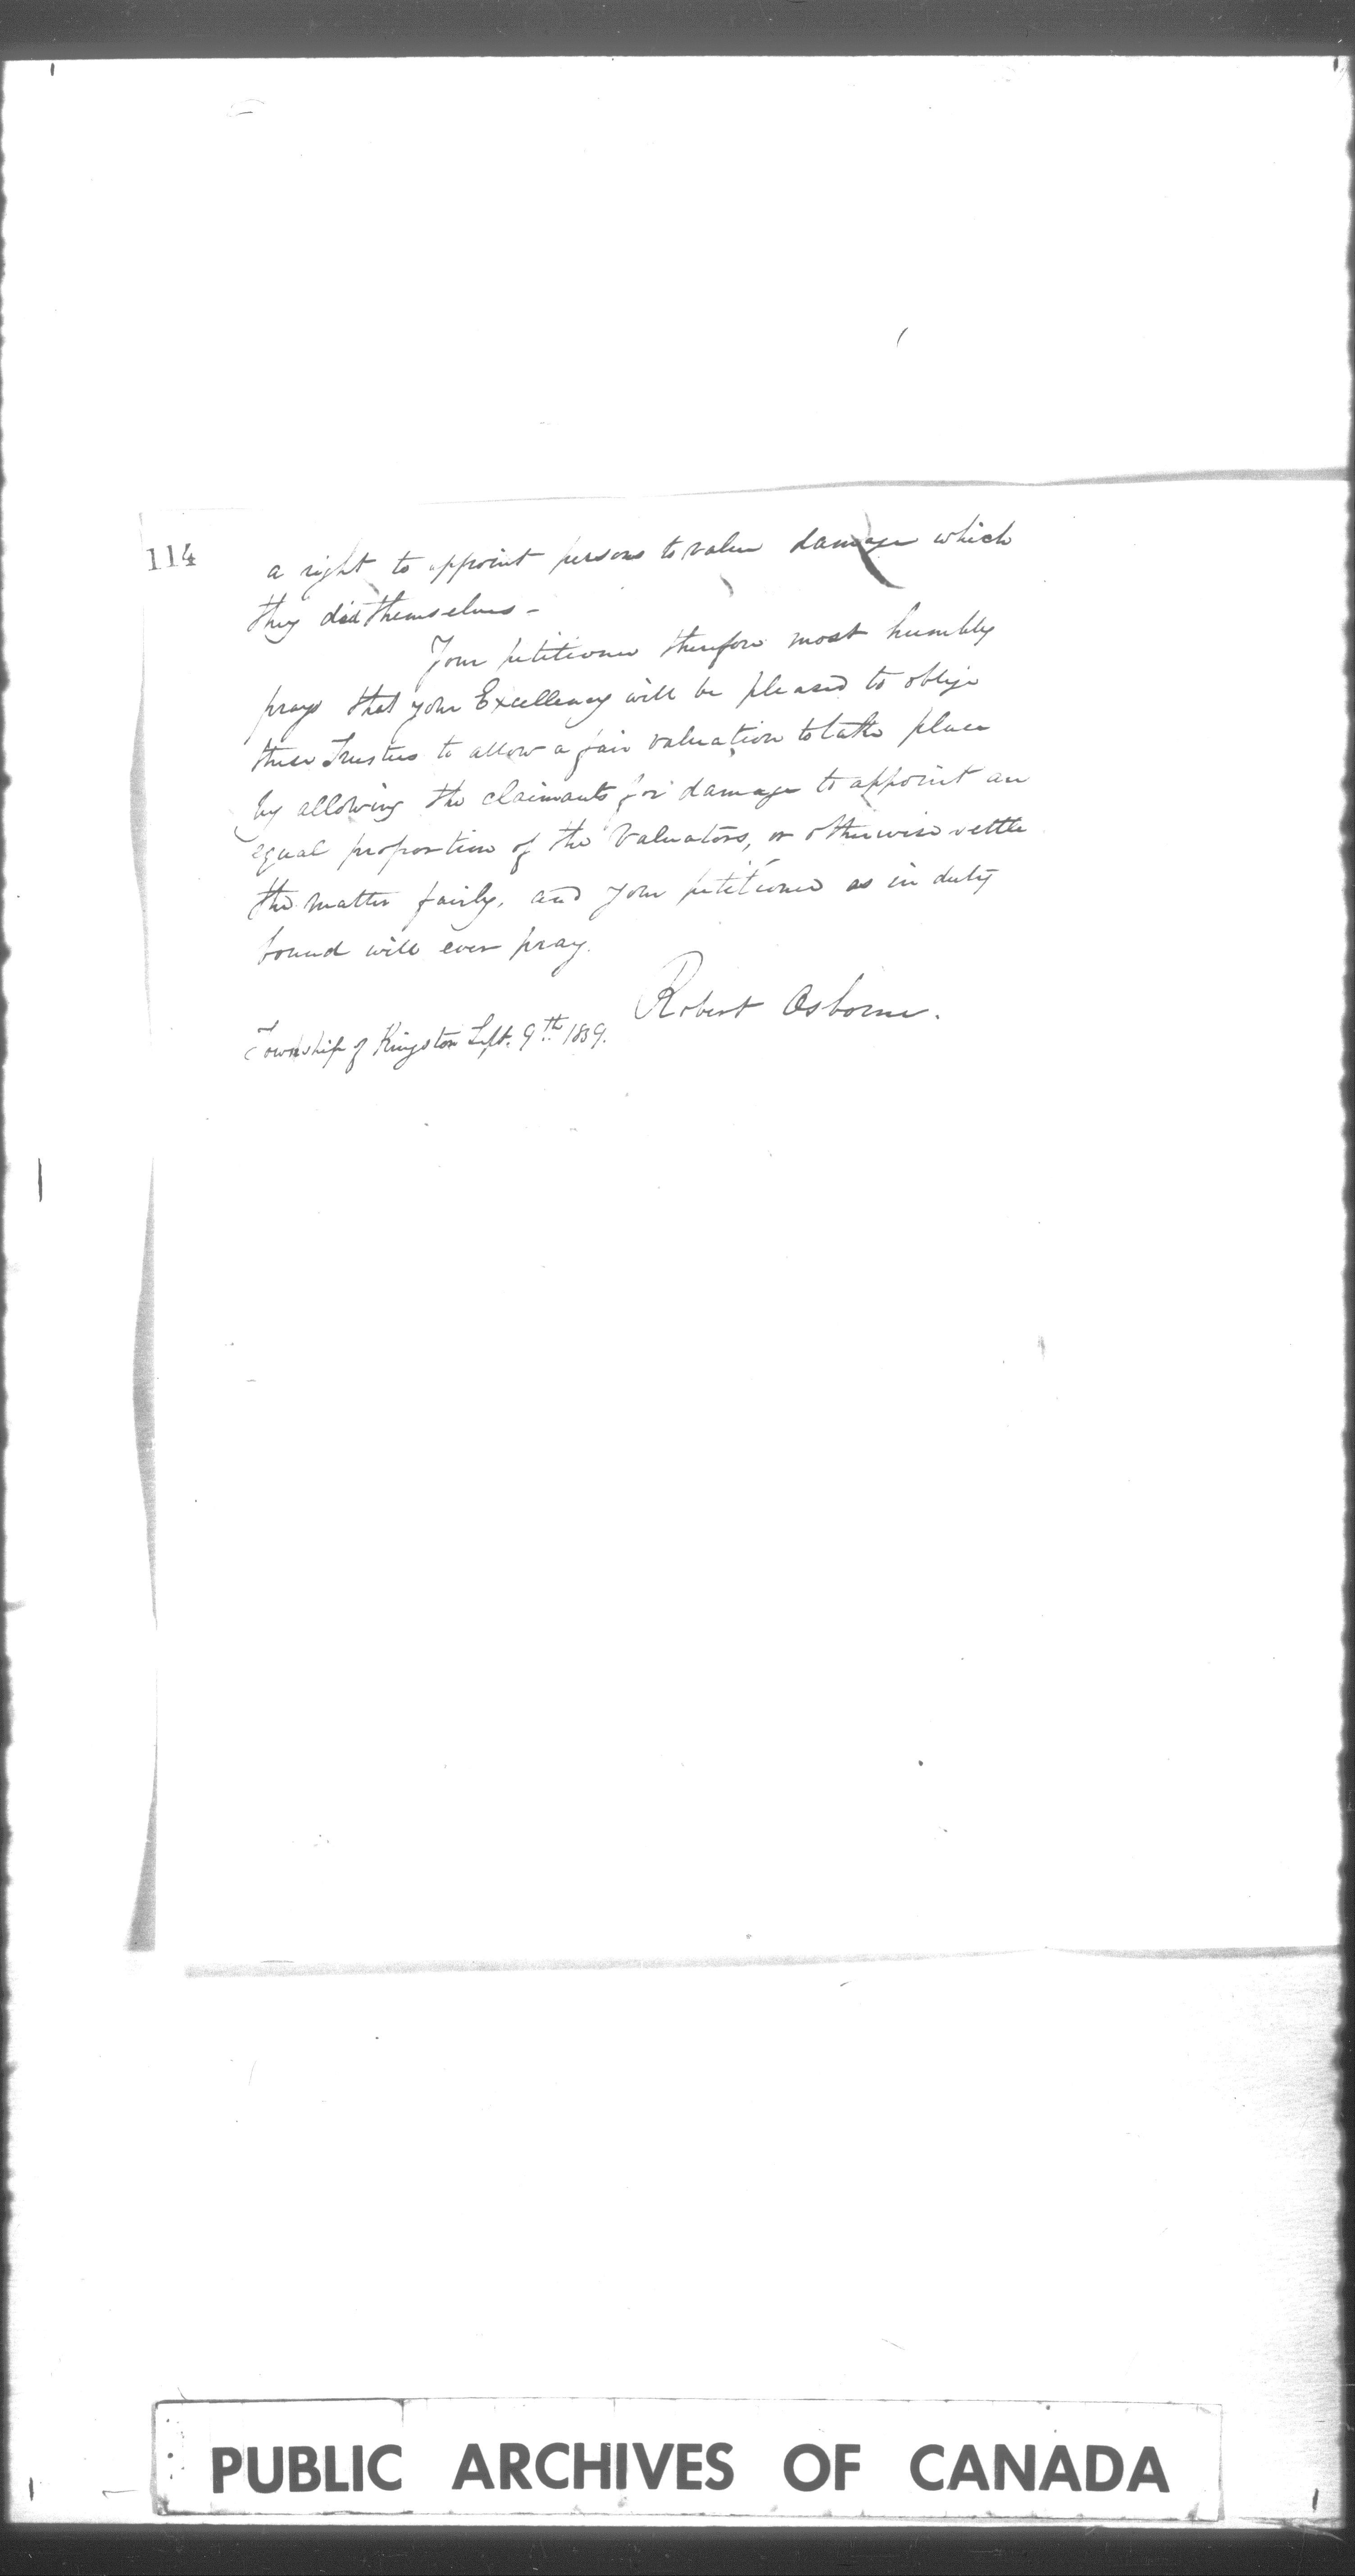 114
a right to appoint persons to value damage which
they did themselves -
Your petitioner therefore most humbly
prays that your Excellency will be pleased to oblige
these Trustees to allow a fair valuation to take place
by allowing the claimants for damage to appoint an
equal proportion of the Valuators, or otherwise settle
the matter fairly, and your petitioner as in duty
bound will ever pray.
Robert Osborne.
Township of Kingston Sept. 9th 1839.
PUBLIC ARCHIVES OF CANADA